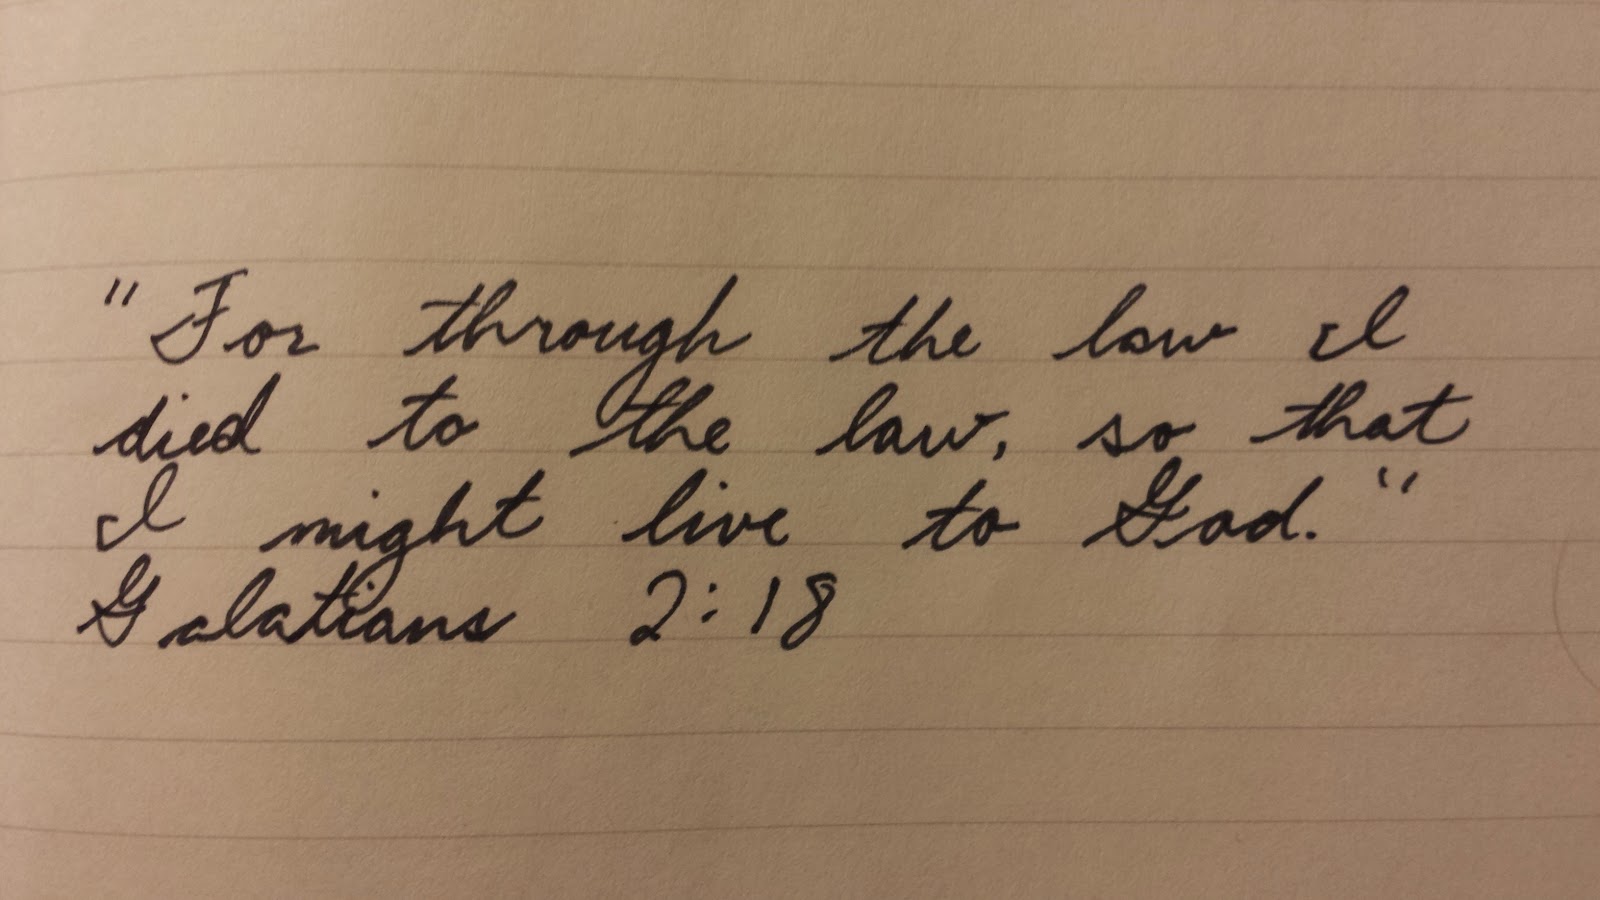 "For through the law I
died to the law, so that
I might live to God."
Galatians 2:18